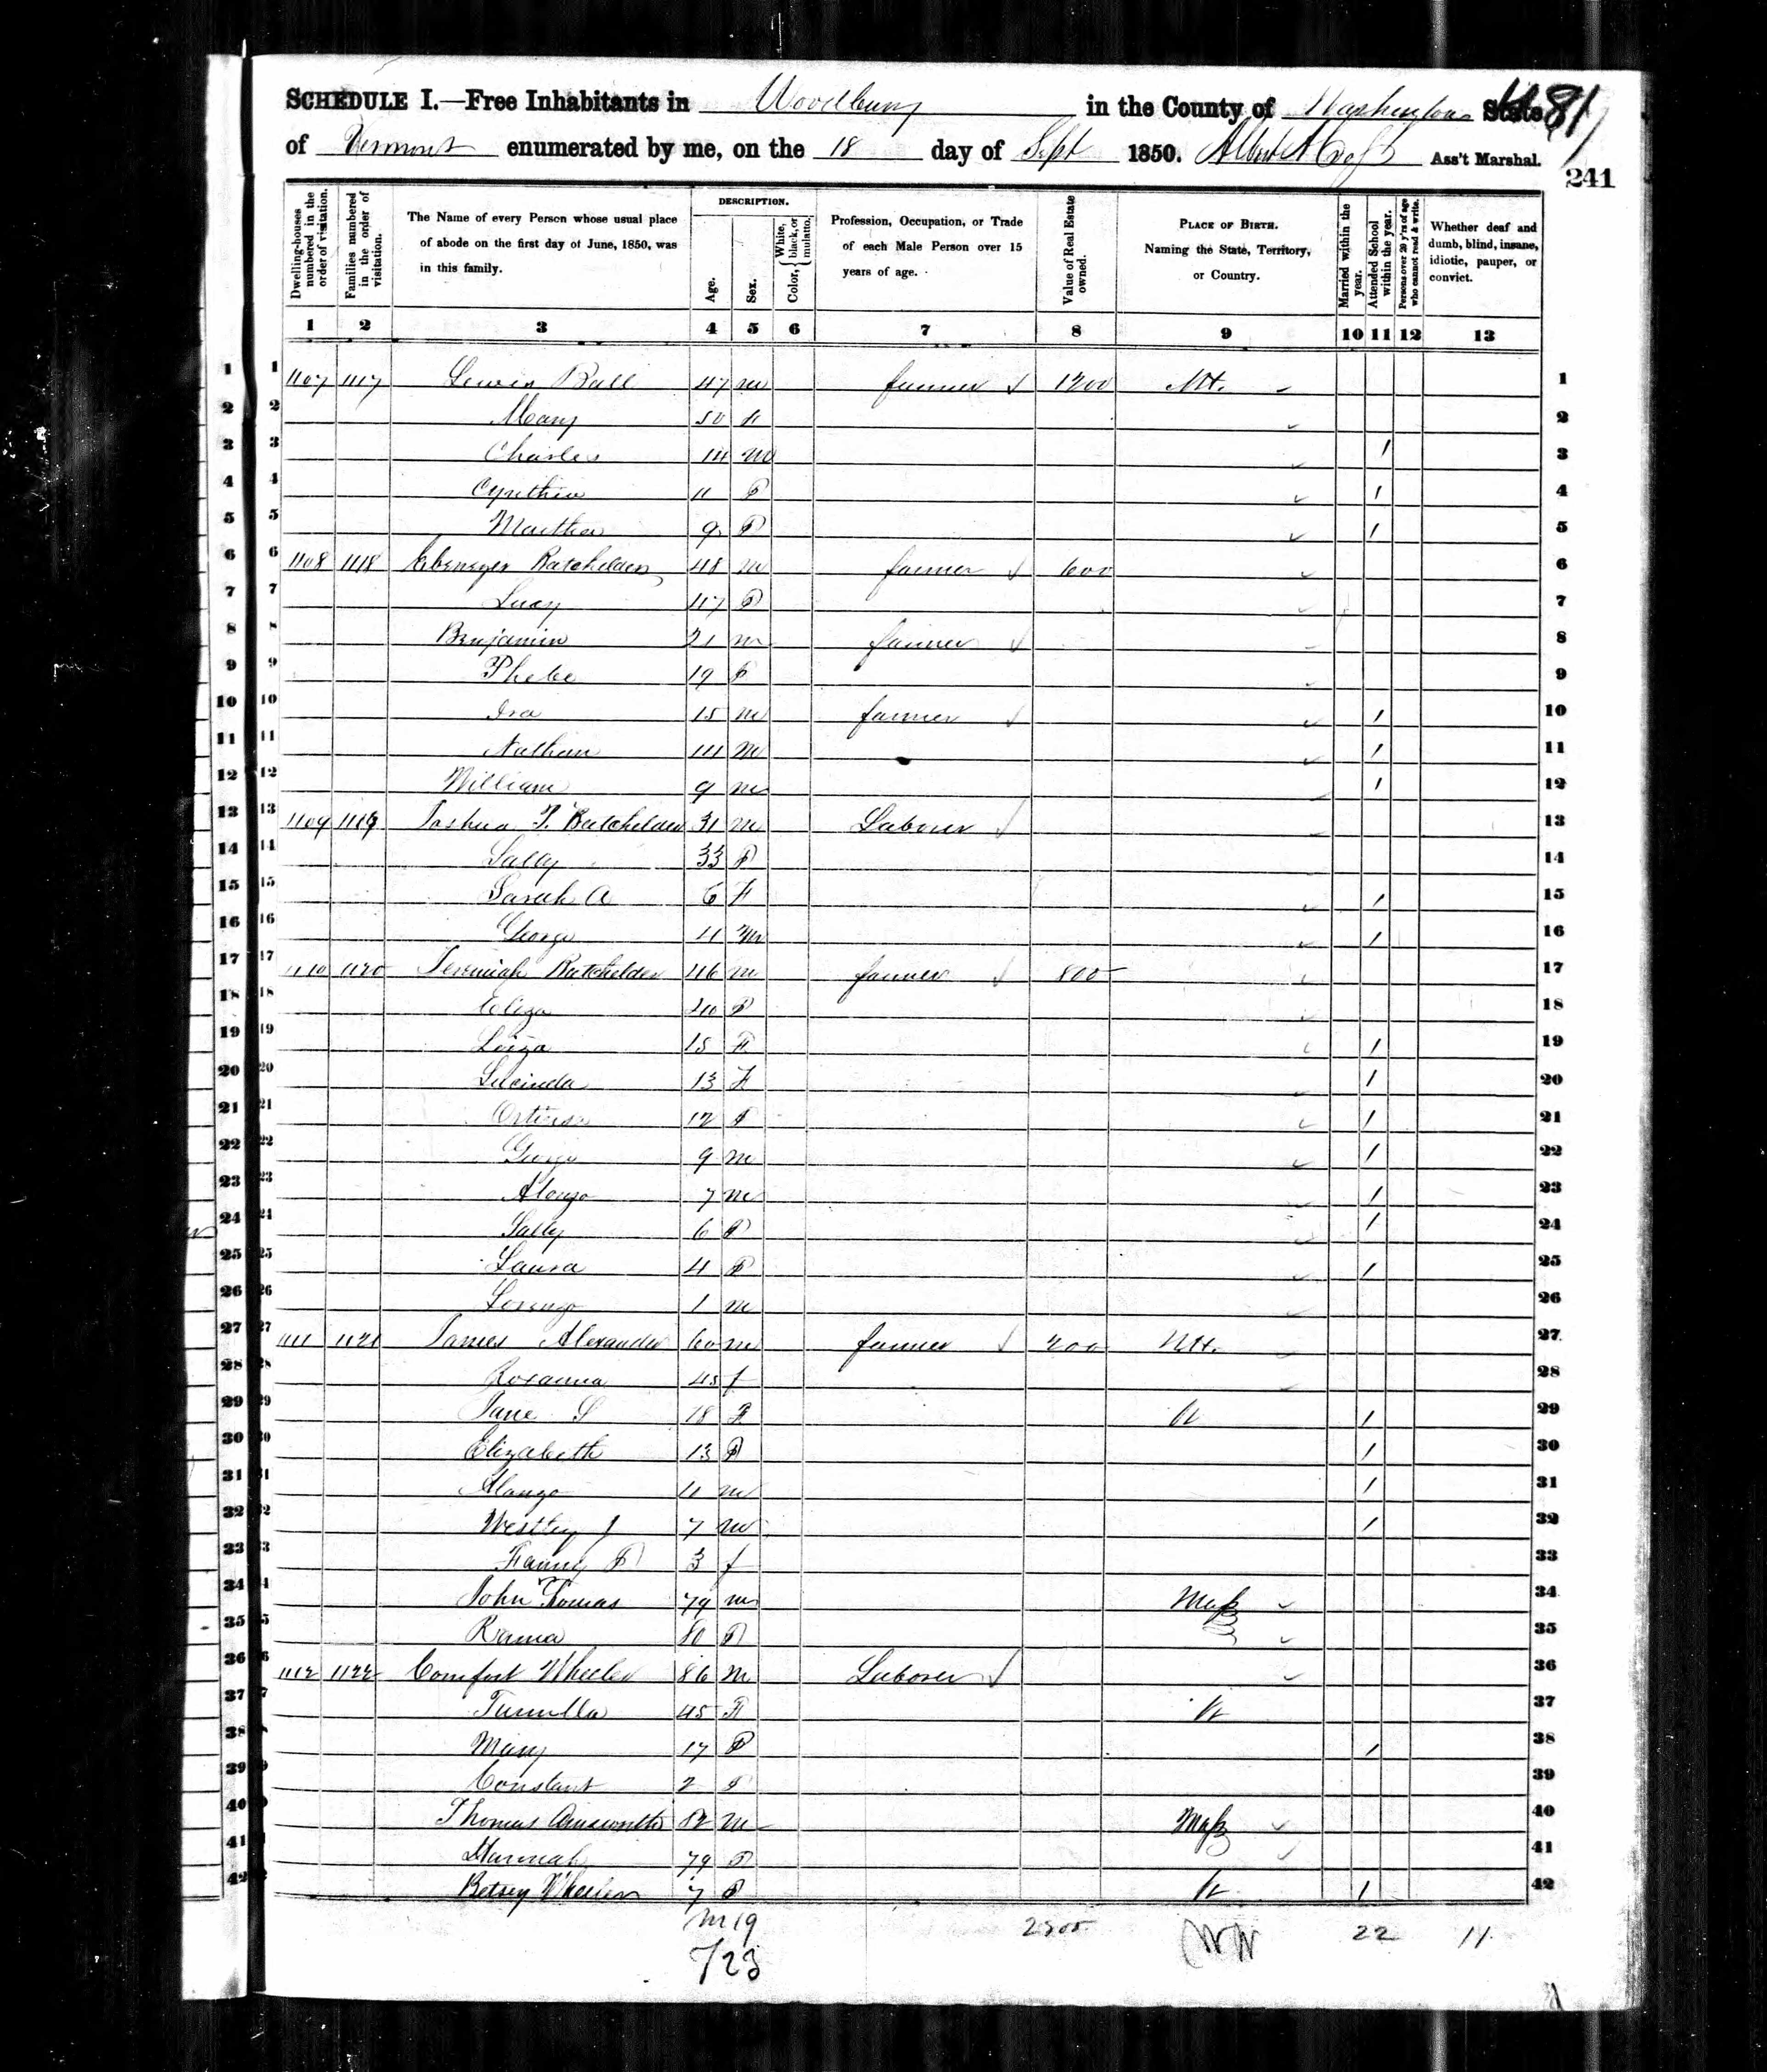 SCHEDULE I.—Free Inhabitants in Woodbury in the County of Washington State 81
of Vermont enumerated by me, on the 18 day of Sept 1850. Albert A Ass't Marshal.
241
Dwelling-houses numbered in the order of visitation.
Families numbered in the order of visitation.
The Name of every Person whose usual place of abode on the first day of June, 1850, was in this family.
DESCRIPTION.
Age.
Sex.
Color, { White, black, or mulatto.
Profession, Occupation, or Trade of each Male Person over 15 years of age.
Value of Real Estate owned.
PLACE OF BIRTH. Naming the State, Territory, or Country.
Married within the year.
Attended School within the year.
Persons over 20 y'rs of age who cannot read & write.
Whether deaf and dumb, blind, insane, idiotic, pauper, or convict.
1 2 3 4 5 6 7 8 9 10 11 12 13
1 1107 1117 Lewis Ball 47 m farmer 1200 NH. 1
2 Mary 50 f 2
3 Charles 14 m 1 3
4 Cynthia 11 F 1 4
5 Martha 9 F 1 5
6 1108 1118 Ebenezer Batchelder 48 m farmer 600 6
7 Lucy 47 F 7
8 Benjamin 21 m farmer 8
9 Phebe 19 F 9
10 Ira 15 m farmer 1 10
11 Nathan 14 m 1 11
12 William 9 m 1 12
13 1109 1119 Joshua T. Batchelder 31 m Laborer 13
14 Sally 33 F 14
15 Sarah A 6 F 1 15
16 George 4 m 1 16
17 1110 1120 Jeremiah Batchelder 46 m farmer 800 17
18 Eliza 40 F 18
19 Loiza 15 F 1 19
20 Lucinda 13 F 1 20
21 12 F 1 21
22 George 9 m 1 22
23 Alonzo 7 m 1 23
24 Sally 6 F 1 24
25 Laura 4 F 1 25
26 Lorenzo 1 m 26
27 1111 1121 James Alexander 60 m farmer 200 NH. 27
28 Roxanna 45 f 28
29 Jane S 18 F Vt 1 29
30 Elizabeth 13 F 1 30
31 Alonzo 11 m 1 31
32 Westley J 7 m 1 32
33 Fanny F 3 f 33
34 John Thomas 79 m Mass 34
35 80 F 35
36 1112 1122 Comfort Wheeler 86 m Laborer 36
37 45 F Vt 37
38 Mary 17 F 1 38
39 Constant 2 F 39
40 Thomas Ainsworth 82 m Mass 40
41 Hannah 79 F 41
42 Betsey Wheeler 7 F Vt 1 42
m 19 22 11
F 23